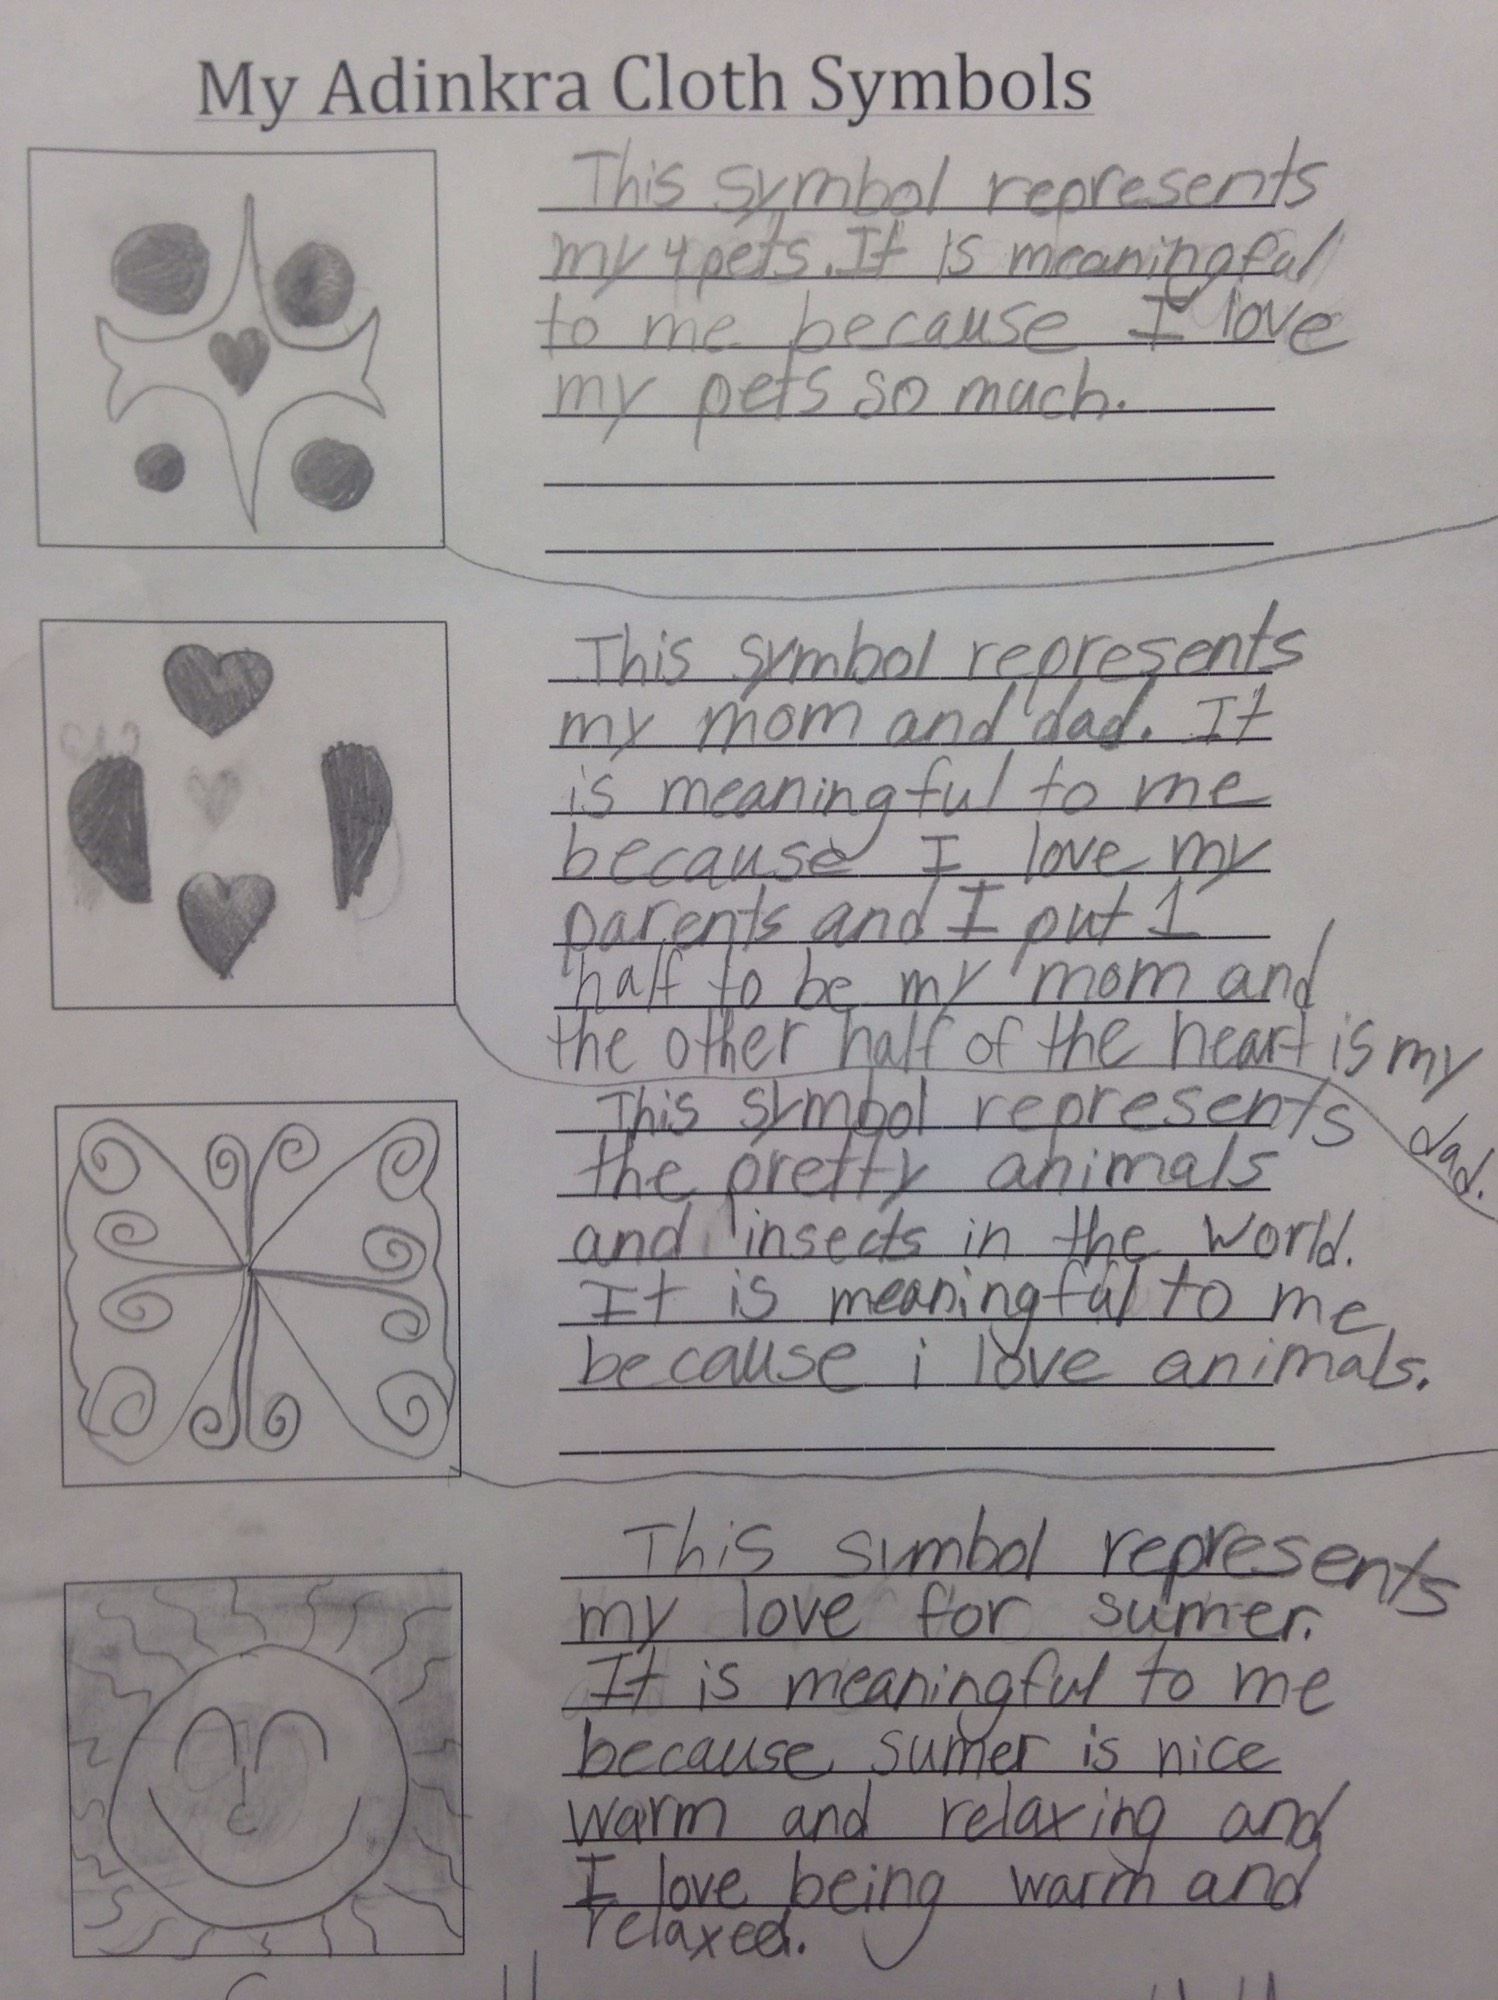 My Adinkra Cloth Symbols
This symbol represents
my 4 pets. It is meaningful
to me because I love
my pets so much.
This symbol represents
my mom and dad. It
is meaningful to me
because I love my
parents and I put 1
half to be my mom and
the other half of the heart is my
dad.
This symbol represents
the pretty animals
and insects in the world.
It is meaningful to me
because i love animals.
This simbol represents
my love for sumer.
It is meaningful to me
because sumer is nice
warm and relaxing and
I love being warm and
relaxed.